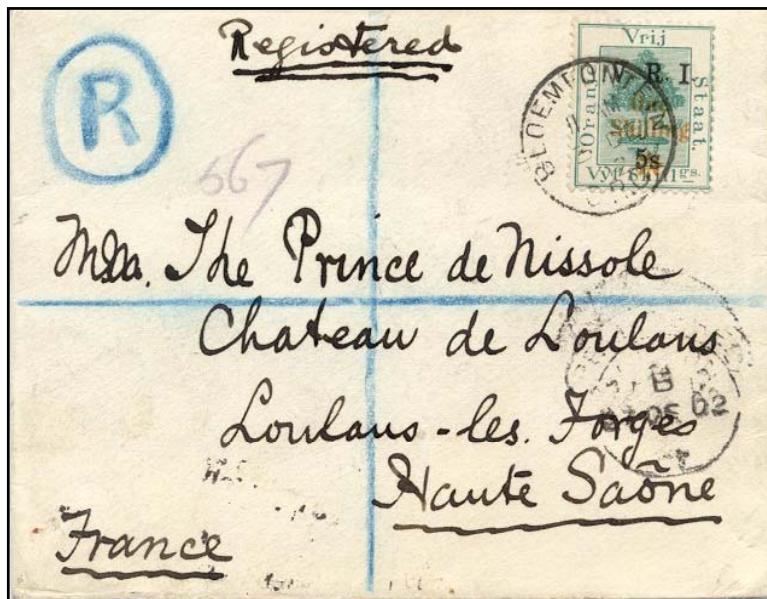 Registered
R
567
Vrij
Oranje
Staat.
R. I.
One
Shilling
5s
Vyf Shillings.
BLOEMFONTEIN
The Prince de Nissole
Chateau de Loulans
Loulans-les. Forges
Haute Saône
France
B
OC 02